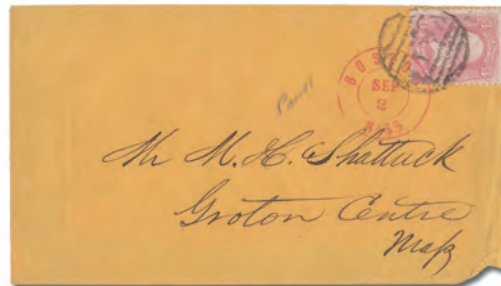 BOSTON
SEP
2
MASS
Mr M. H. Shattuck
Groton Centre
Mass